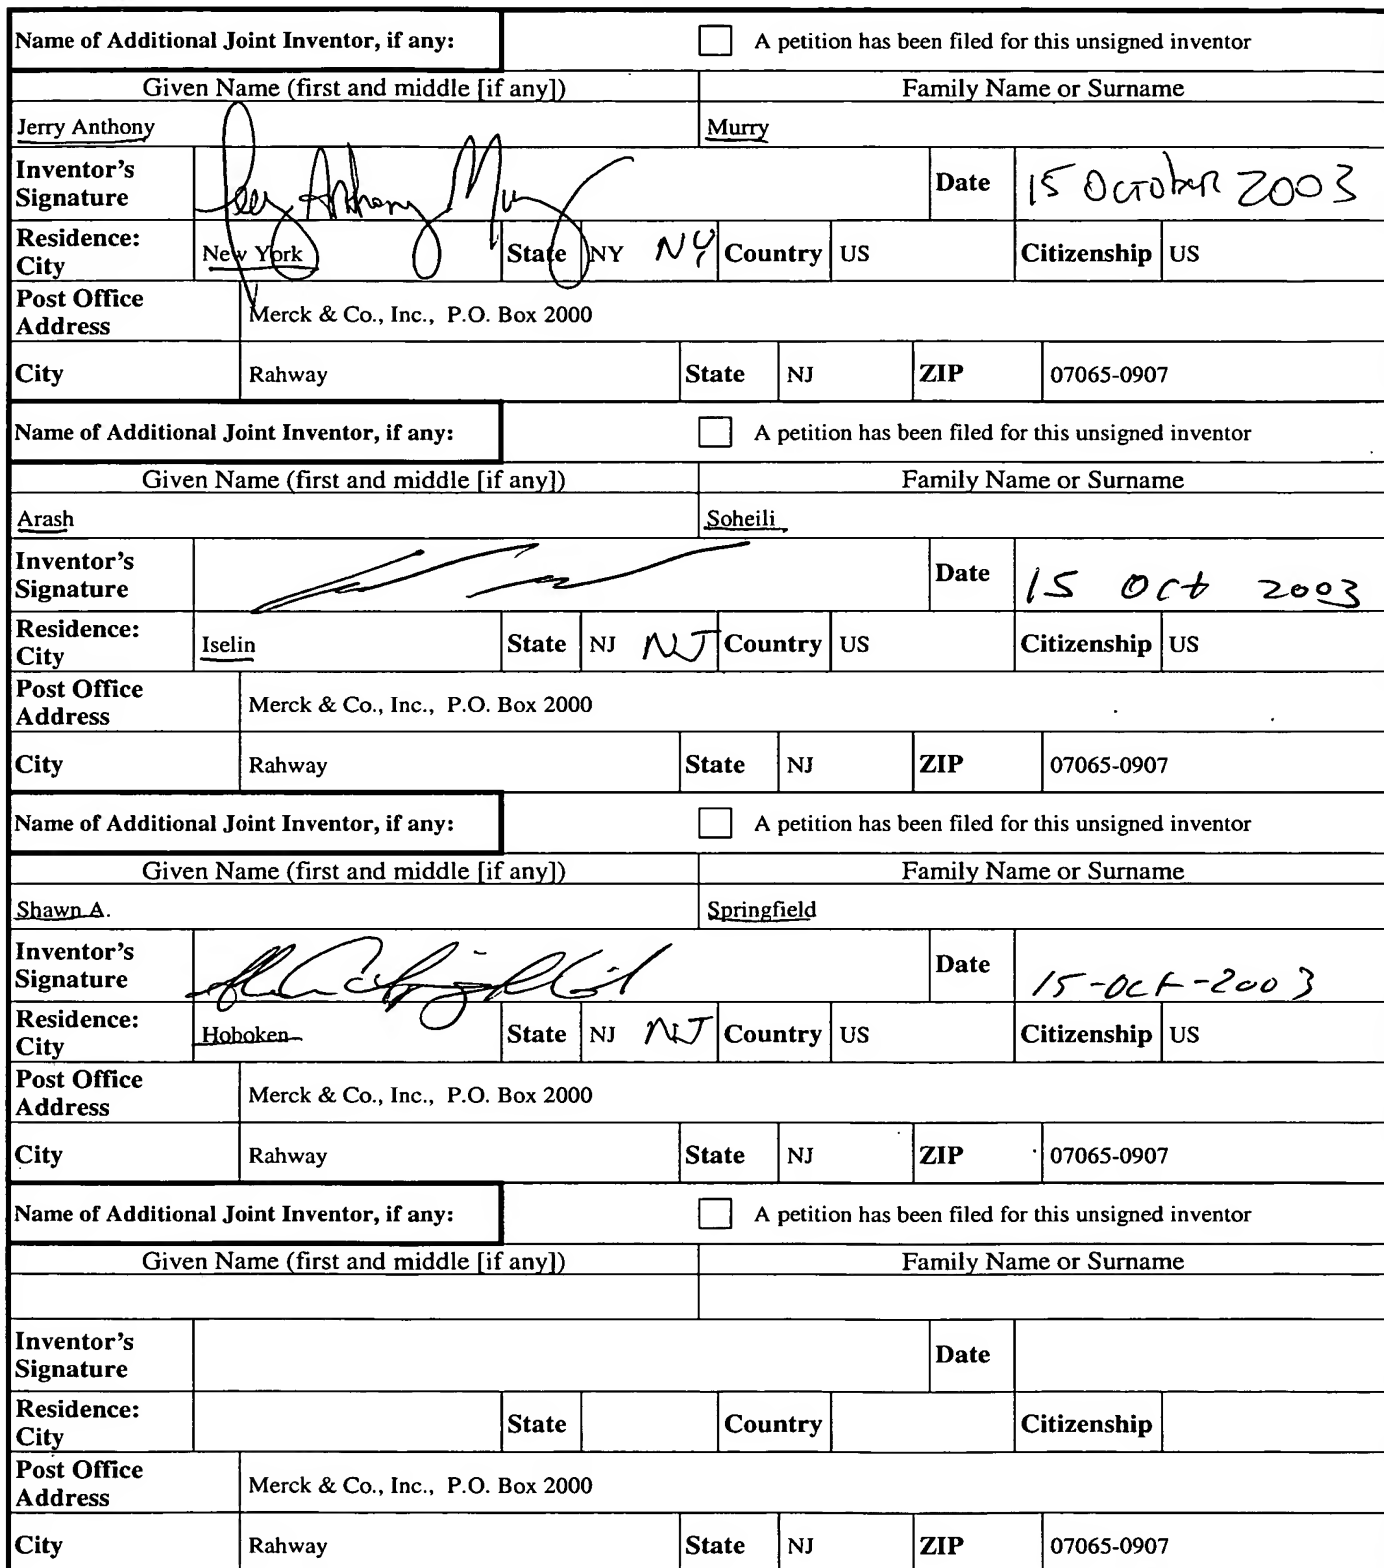 Name of Additional Joint Inventor, if any: A petition has been filed for this unsigned inventor
Given Name (first and middle [if any]) Family Name or Surname
Jerry Anthony Murry
Inventor's Signature Jerry Anthony Murry Date 15 October 2003
Residence: City New York State NY NY Country US Citizenship US
Post Office Address Merck & Co., Inc., P.O. Box 2000
City Rahway State NJ ZIP 07065-0907
Name of Additional Joint Inventor, if any: A petition has been filed for this unsigned inventor
Given Name (first and middle [if any]) Family Name or Surname
Arash Soheili
Inventor's Signature Date 15 Oct 2003
Residence: City Iselin State NJ NJ Country US Citizenship US
Post Office Address Merck & Co., Inc., P.O. Box 2000
City Rahway State NJ ZIP 07065-0907
Name of Additional Joint Inventor, if any: A petition has been filed for this unsigned inventor
Given Name (first and middle [if any]) Family Name or Surname
Shawn A. Springfield
Inventor's Signature Date 15-Oct-2003
Residence: City Hoboken State NJ NJ Country US Citizenship US
Post Office Address Merck & Co., Inc., P.O. Box 2000
City Rahway State NJ ZIP 07065-0907
Name of Additional Joint Inventor, if any: A petition has been filed for this unsigned inventor
Given Name (first and middle [if any]) Family Name or Surname
Inventor's Signature Date
Residence: City State Country Citizenship
Post Office Address Merck & Co., Inc., P.O. Box 2000
City Rahway State NJ ZIP 07065-0907